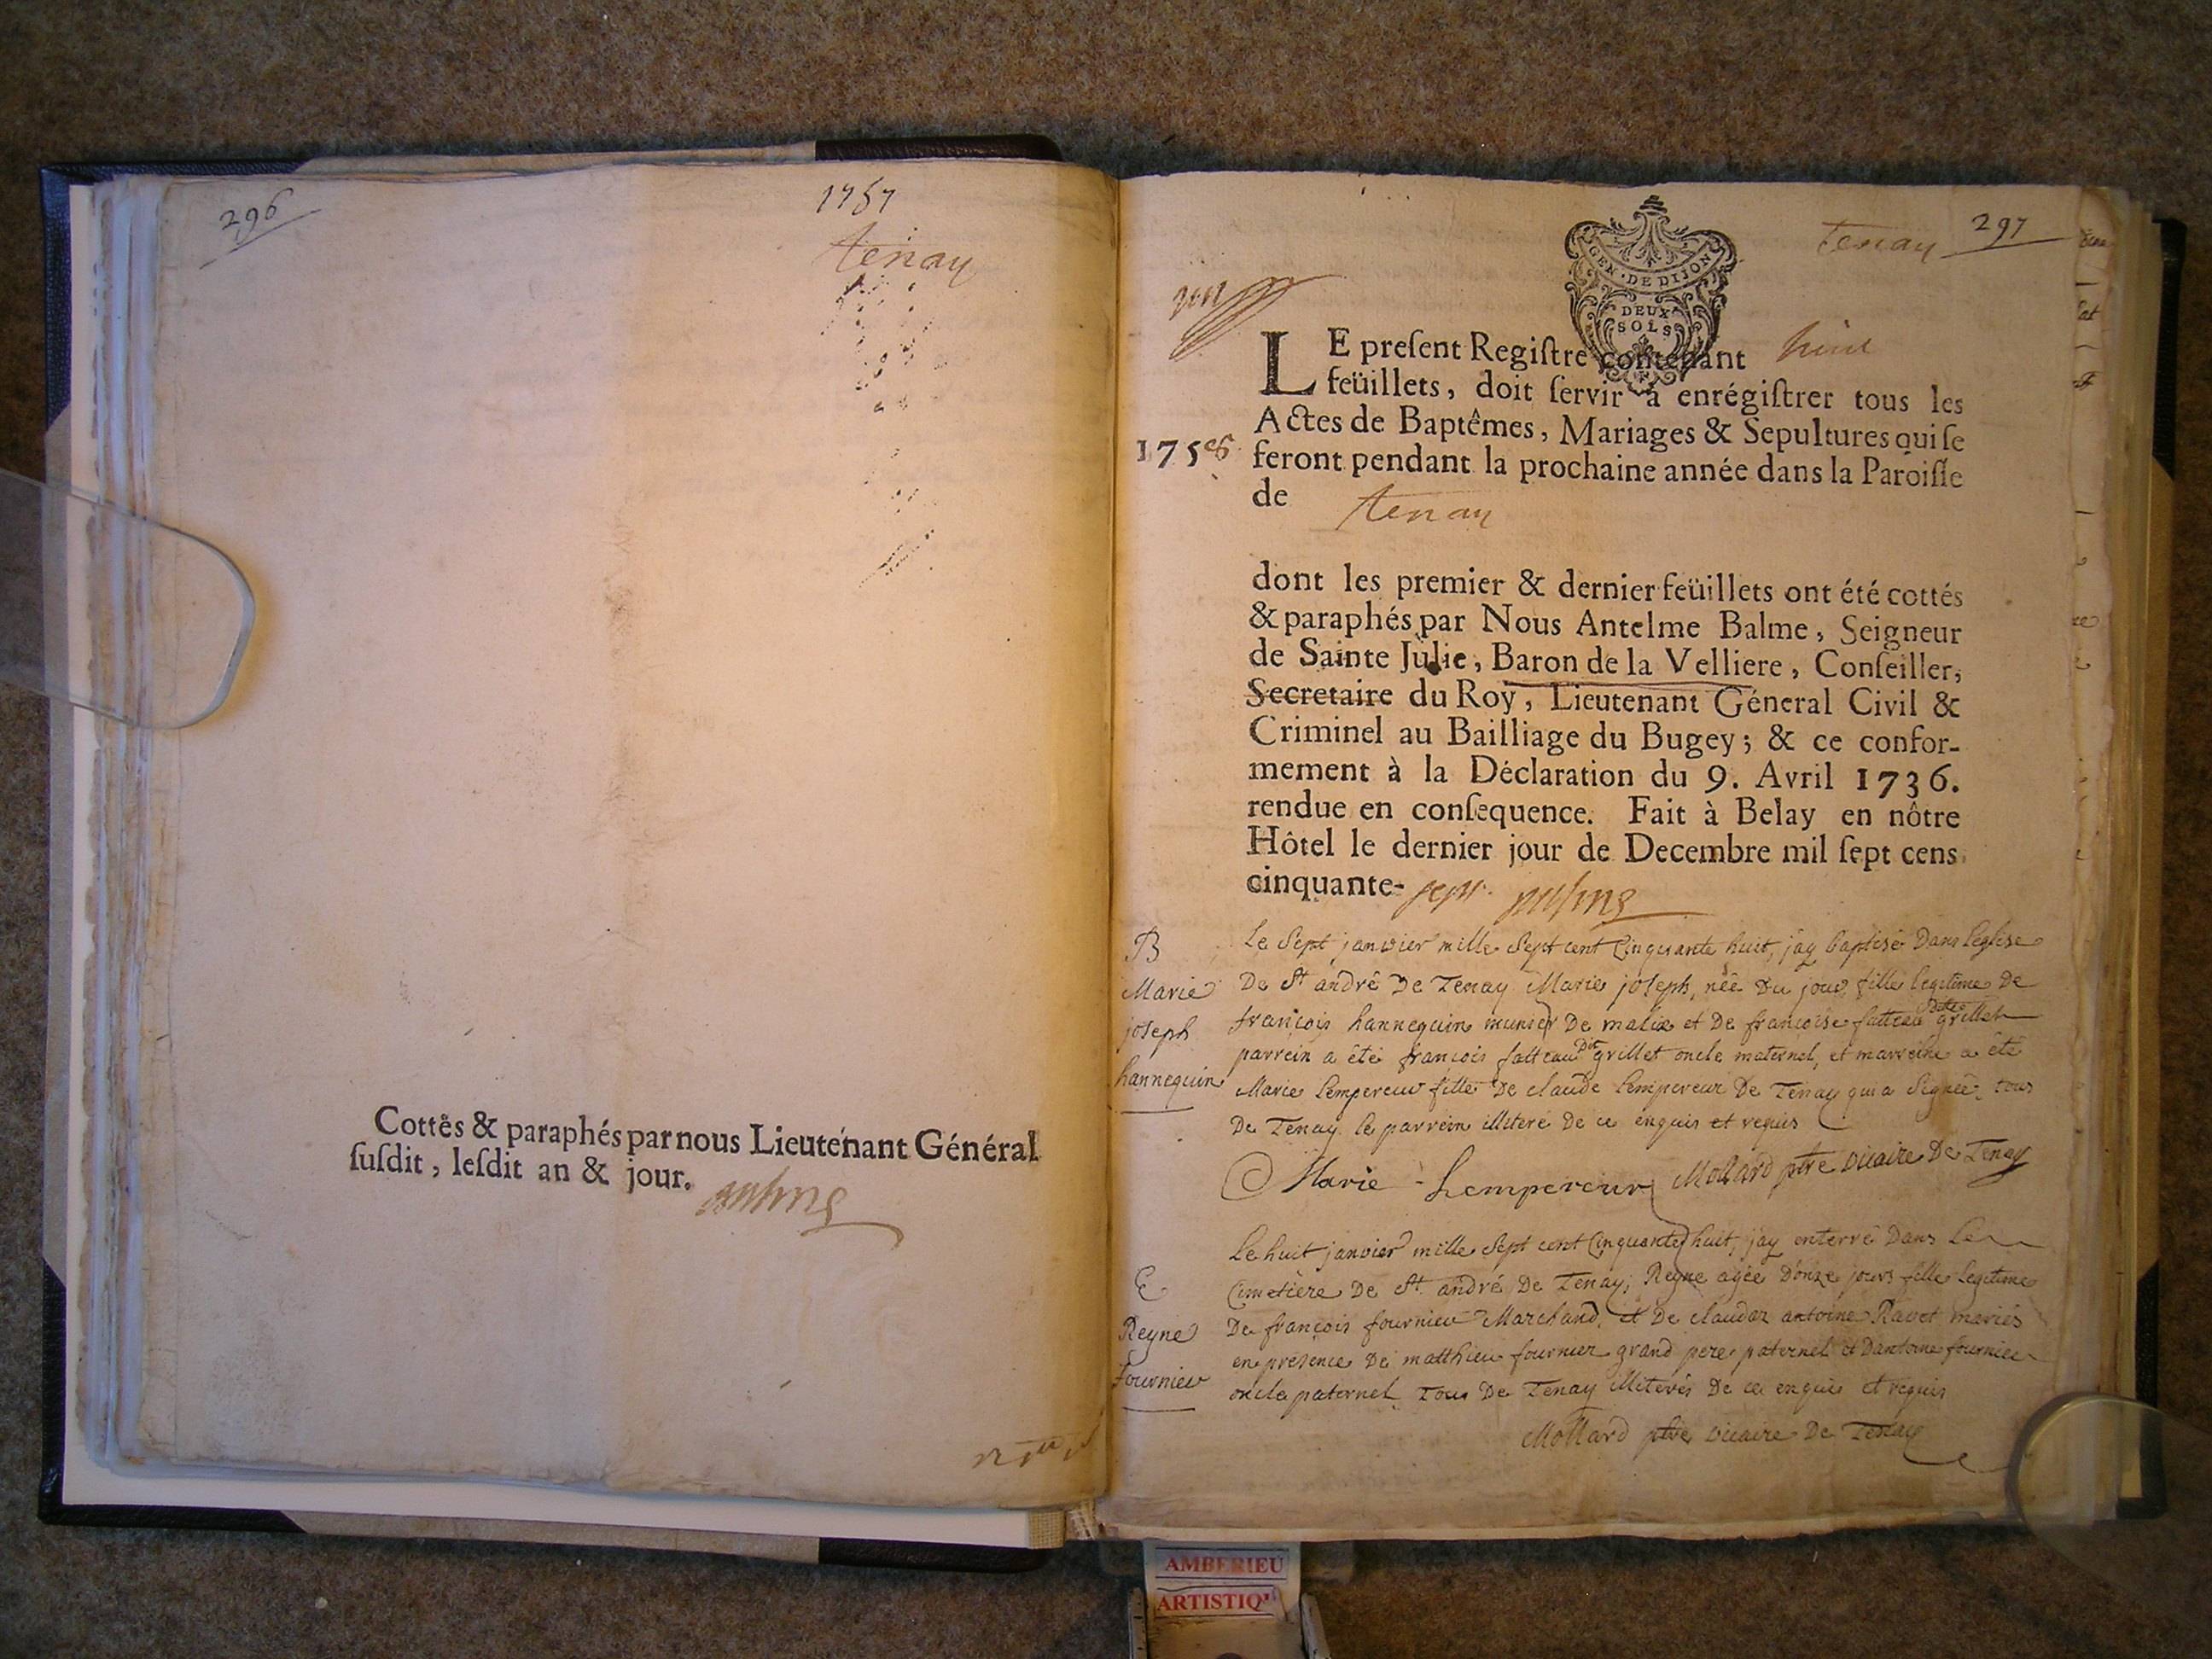 296
1757
tenay
Cottés & paraphés par nous Lieutenant Général
susdit, lesdit an & jour.
tenay 297
GEN · DE DIJON
DEUX
SOLS
LE present Registre contenant huit
feüillets, doit servir à enrégistrer tous les
Actes de Baptêmes, Mariages & Sepultures qui se
1758 feront pendant la prochaine année dans la Paroisse
de tenay
dont les premier & dernier feüillets ont été cottés
& paraphés par Nous Antelme Balme, Seigneur
de Sainte Julie, Baron de la Velliere, Conseiller,
Secretaire du Roy, Lieutenant Géneral Civil &
Criminel au Bailliage du Bugey; & ce confor-
mement à la Déclaration du 9. Avril 1736.
rendue en consequence. Fait à Belay en nôtre
Hôtel le dernier jour de Decembre mil sept cens
cinquante-sept.
B
Marie
joseph
hannequin
Le Sept janvier mille Sept cent Cinquante huit, jay baptisé Dans l'eglise
De St andré De Tenay Marie joseph, née Du jour, fille legitime De
françois hannequin munier De malix et De francoise falteau Ditte grillet
parrein a été françois falteau Dit grillet oncle maternel, et marreine a été
Marie Lempereur fille De claude Lempereur De Tenay qui a Signée, tous
De Tenay le parrein illiteré De ce enquis et requis
Marie Lempereur Mollard ptre vicaire De Tenay
E
Reyne
fournier
Le huit janvier mille Sept cent Cinquante huit, jay enterré Dans Le
Cimetiere De St andré De Tenay, Reyne agée D'onze jours fille legitime
De françois fournier Marchand, et De claudaz antoine Ravet mariés
en presence De matthieu fournier grand pere paternel et D'antoine fournier
oncle paternel Tous De Tenay illiterés De ce enquis et requis
Mollard ptre vicaire De Tenay
AMBERIEU
ARTISTIQ